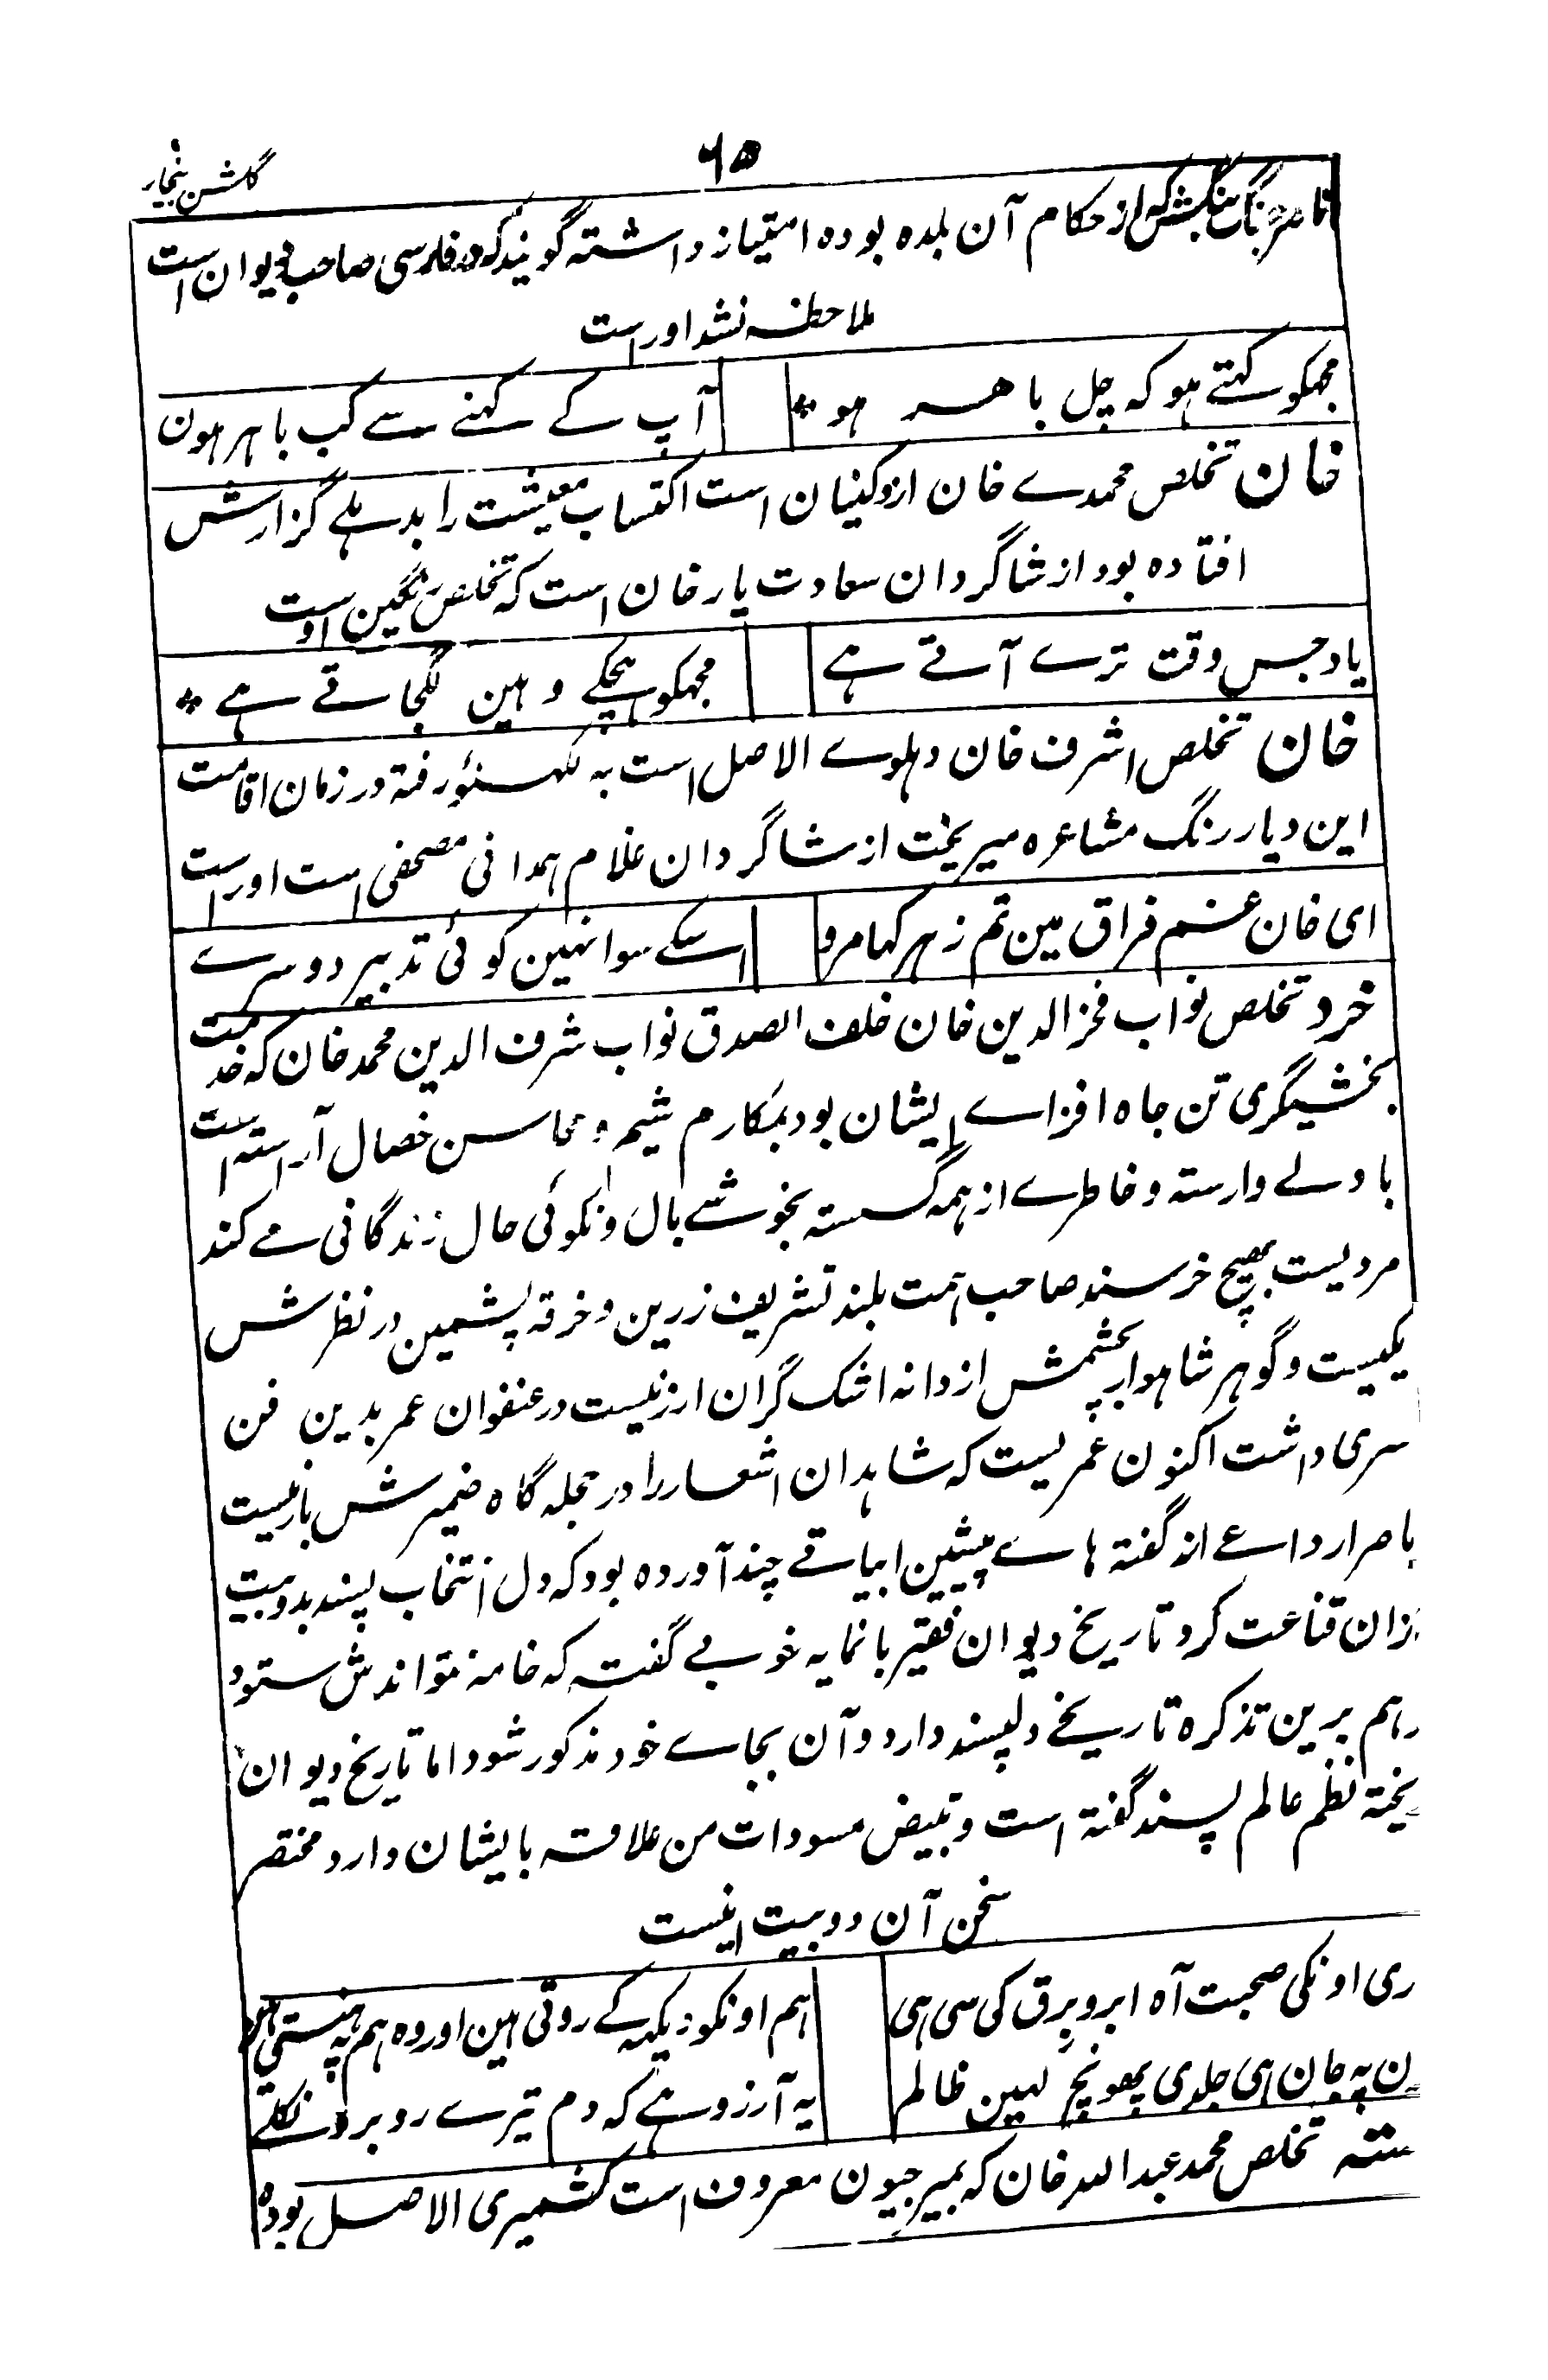 ۶۵
گلشن بیخار
ناصر جنگ بنگش که از حکام آن بلده بوده امتیاز داشته گویند که در فارسی صاحب دیوان است
ملاحظه نشد او راست
مجهکو کہتے ہو کہ چل باہر ہو
آپ کے کہنے سے کب باہر ہون
خان تخلص محمدے خان از دکنیان است اکتساب معیشت را بدہلے گزارش
افتاده بود از شاگردان سعادت یار خان است که تخلص رنگین اوست
یاد جس وقت ترے آتے ہے
مجهکو ہچکے وہین لگجاتے ہے
خان تخلص اشرف خان دہلوے الاصل است به لکہنؤ رفته در زمان اقامت
این دیار رنگ مشاعره میریخت از شاگردان غلام ہمدانی مصحفی است او راست
ای خان غم فراق مین تم زہر کہا مرو
اسکے سوا نہین کوئی تدبیر دوسرے
خرد تخلص نواب فخر الدین خان خلف الصدق نواب شرف الدین محمد خان که خدمت
بخشیگری تن جاه افزاے ایشان بود بمکارم شیم و محاسن خصال آراسته است
با دلے وارسته و خاطرے از ہمه گسسته بخوشے بال و نکوئی حال زندگانی مے کند
مردیست بہیچ خرسند صاحب ہمت بلند تشریف زرین و خرقه پشمین در نظرش
یکیست و گوہر شاہوار بچشمش از دانه اشک گران ارز نیست در عنفوان عمر بدین فن
سری داشت اکنون عمریست که شاہدان اشعار را در حجله گاه ضمیرش بار نیست
باصرار داعے از گفته ہاے پیشین ابیاتے چند آورده بود که دل انتخاب پسند بدو بیت
زان قناعت کرد تاریخ دیوان فقیر بانمایه خوبے گفته که خامه نتواندش ستود
ہم برین تذکره تاریخے دلپسند دارد و آن بجاے خود مذکور شود اما تاریخ دیوان
یخته نظم عالم پسند گفته است و تبییض مسودات من علاقه بایشان دارد مختصر
سخن آن دو بیت اینست
ری اونکی صحبت آه ابر و برق کی سی ہی
ہم اونکو دیکہہ کے روتی ہین اور وہ ہم پہ ہنستی ہین
ن پہ جان ہی جلدی پہونچ لعین ظالم
یہ آرزو ہے کہ دم تیرے روبرو نکلے
ستہ تخلص محمد عبد الله خان که بمیر جیون معروف است کشمیری الاصل بوده